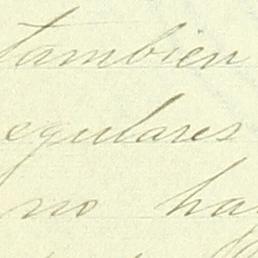 tambien
egulares
no ha